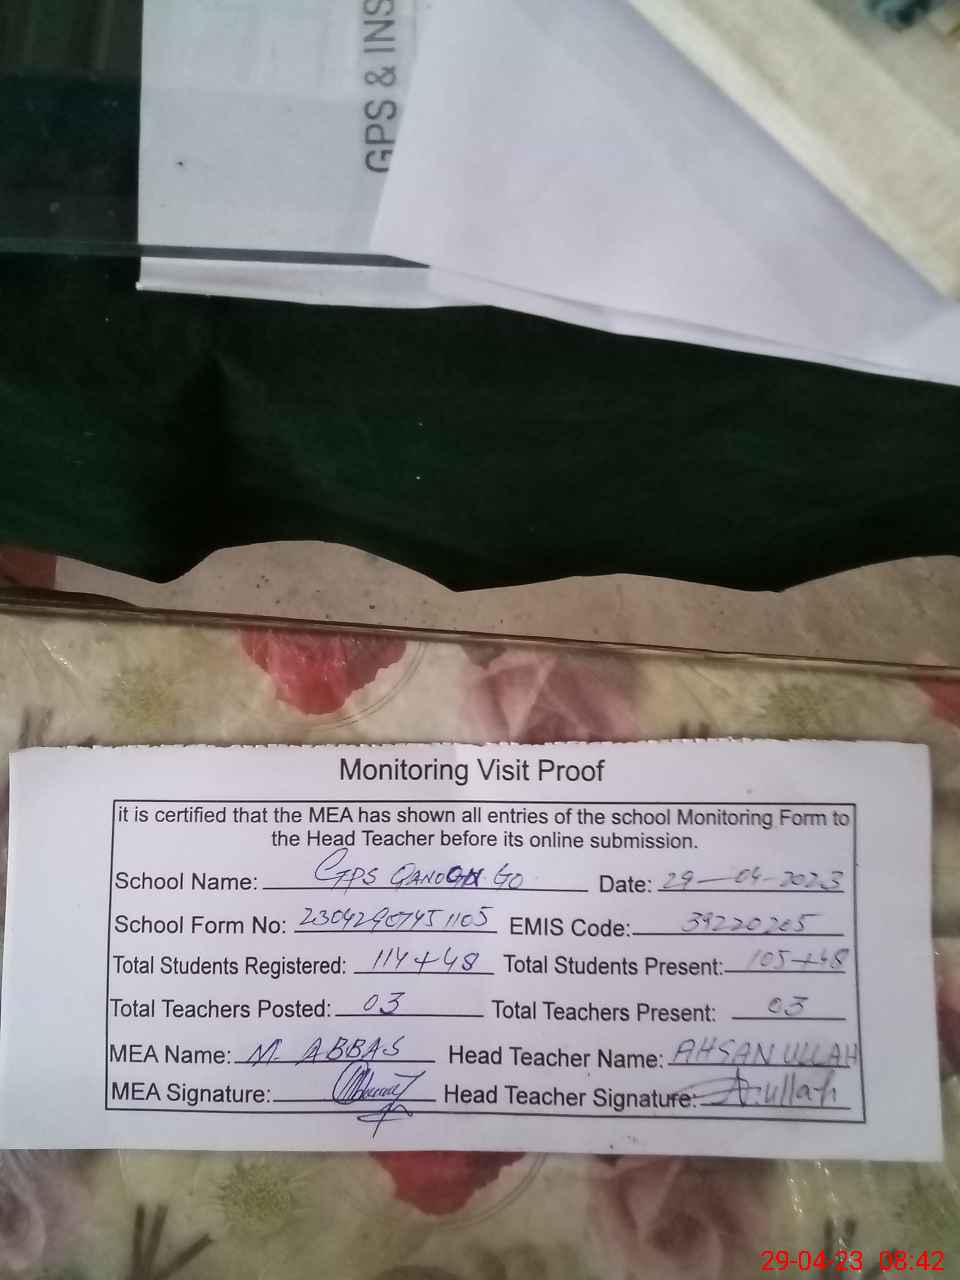 GPS & INS
Monitoring Visit Proof
it is certified that the MEA has shown all entries of the school Monitoring Form to
the Head Teacher before its online submission.
School Name: GPS QANOGH GO Date: 29-04-2023
School Form No: 23042907451105 EMIS Code: 39220205
Total Students Registered: 114+48 Total Students Present: 105+48
Total Teachers Posted: 03 Total Teachers Present: 03
MEA Name: M. ABBAS Head Teacher Name: AHSAN ULLAH
MEA Signature: Head Teacher Signature: A.ullah
29-04-23 08:42